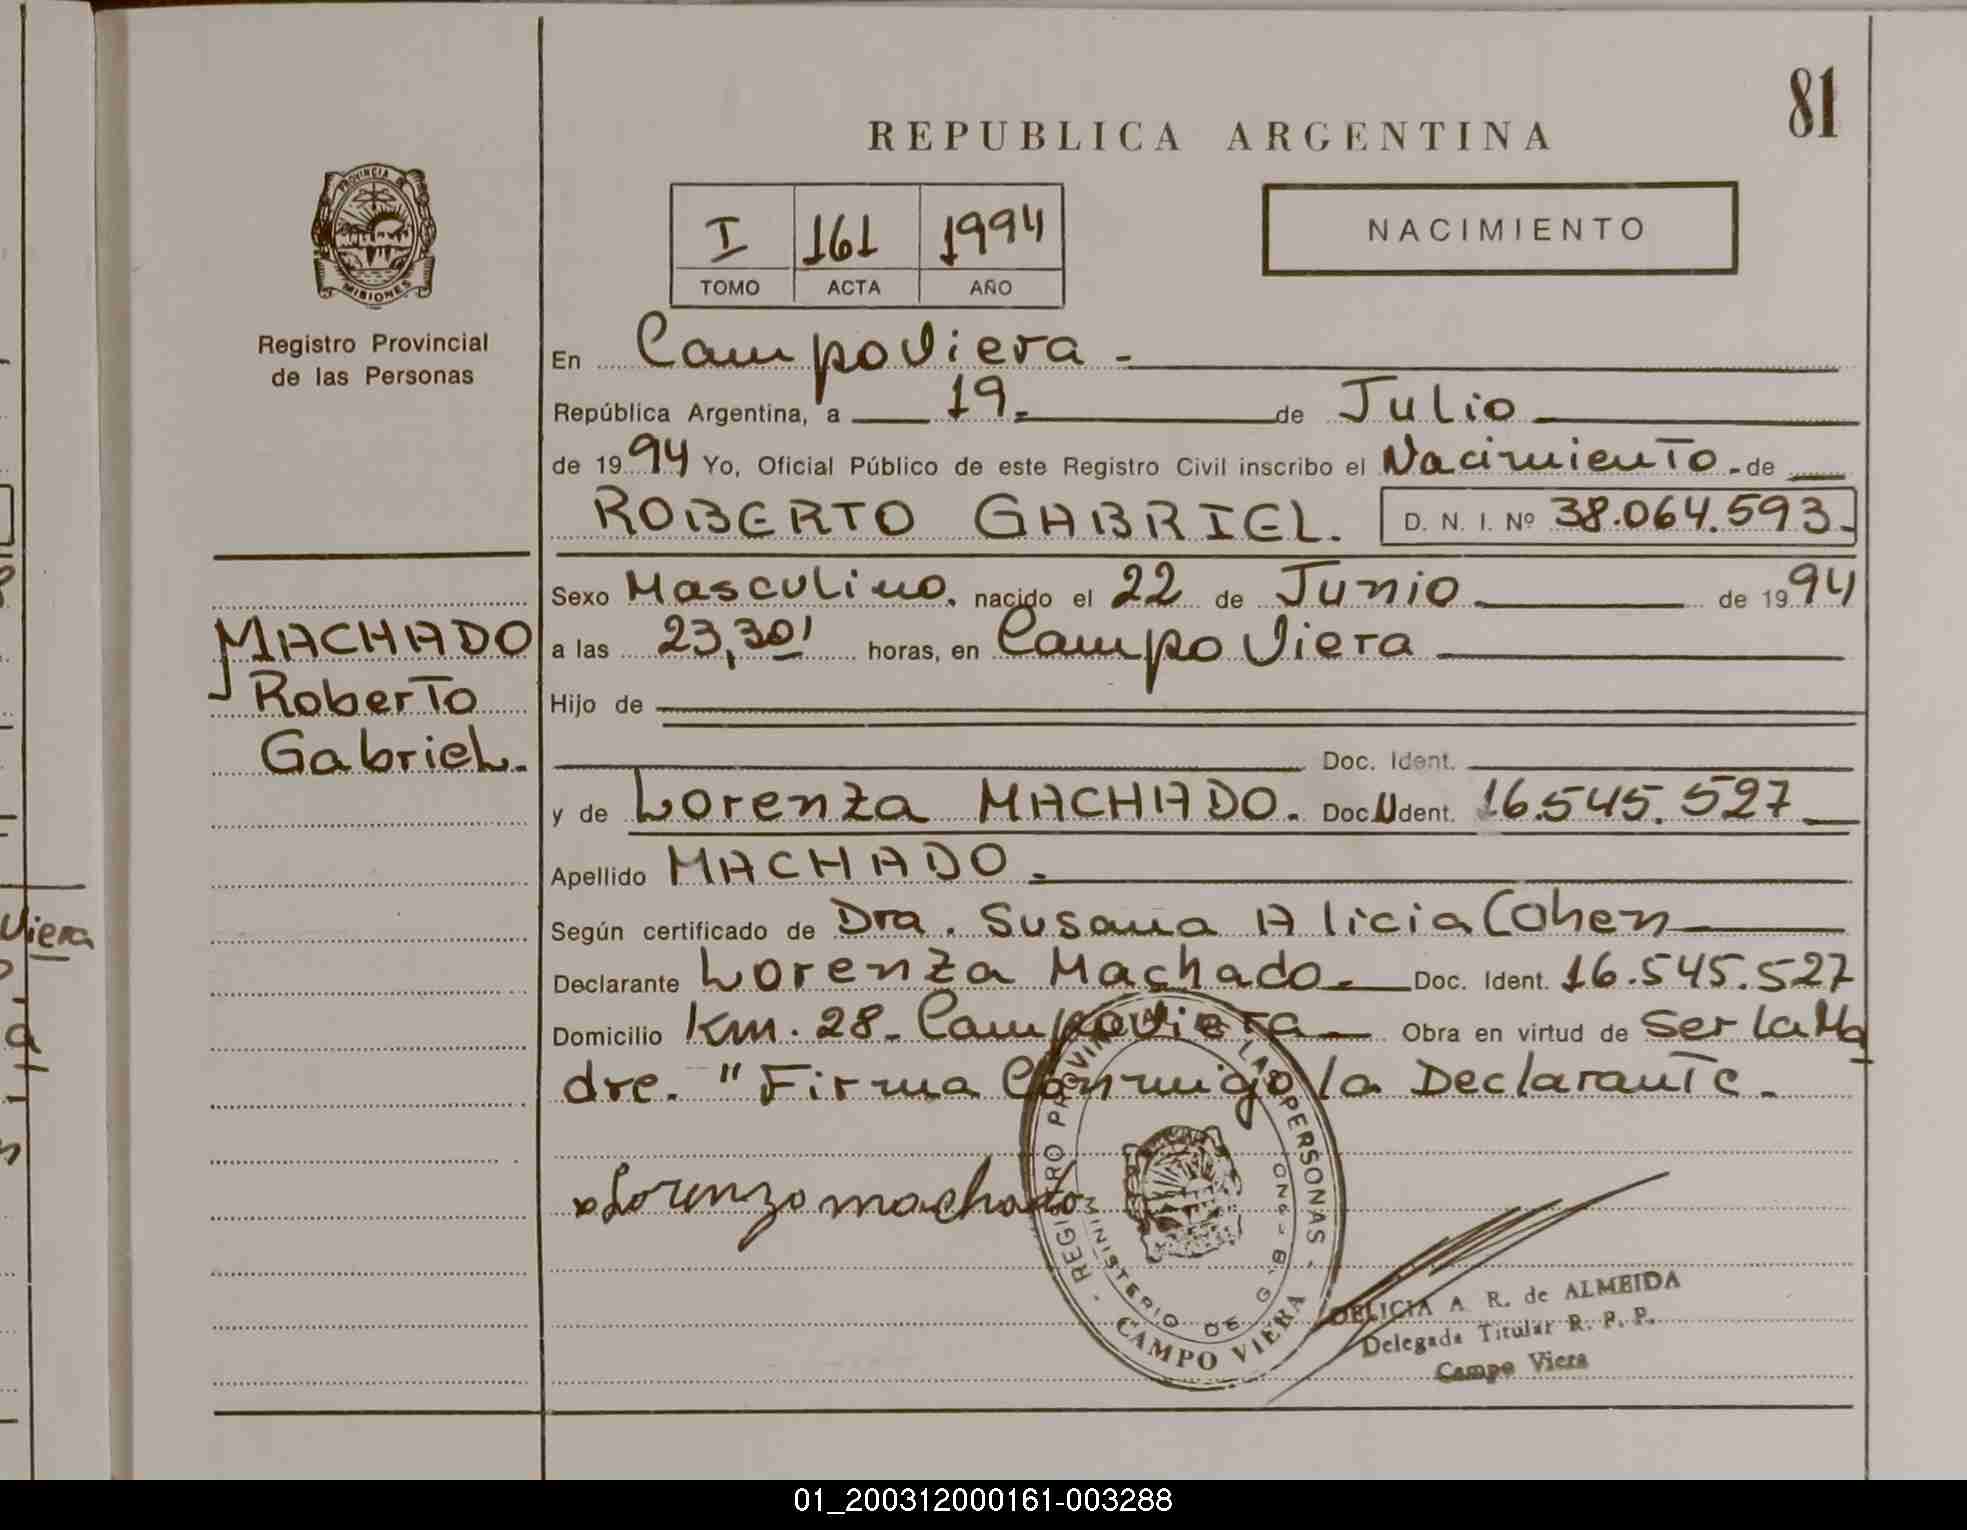 81
REPUBLICA ARGENTINA
PROVINCIA DE
MISIONES
I 161 1994
TOMO ACTA AÑO
NACIMIENTO
Registro Provincial
de las Personas
En Campo Viera -
República Argentina, a 19- de Julio
de 1994 Yo, Oficial Público de este Registro Civil inscribo el Nacimiento - de
ROBERTO GABRIEL. D. N. I. Nº 38.064.593-
MACHADO
Roberto
Gabriel.
Sexo Masculino. nacido el 22 de Junio de 1994
a las 23,30' horas, en Campo Viera
Hijo de
Doc. Ident.
y de Lorenza MACHADO. Doc. Ident. 16.545.527
Apellido MACHADO.
Según certificado de Dra. Susana Alicia Cohen
Declarante Lorenza Machado. Doc. Ident. 16.545.527
Domicilio Km. 28- Campo Viera Obra en virtud de Ser la Ma
dre. "Firma Conmigo la Declarante.
Lorenzo machado
REGISTRO PROVINCIAL DE LAS PERSONAS
MINISTERIO DE G.
CAMPO VIERA
DELICIA A R. de ALMEIDA
Delegada Titular R. P. P.
Campo Viera
Viera
01_200312000161-003288